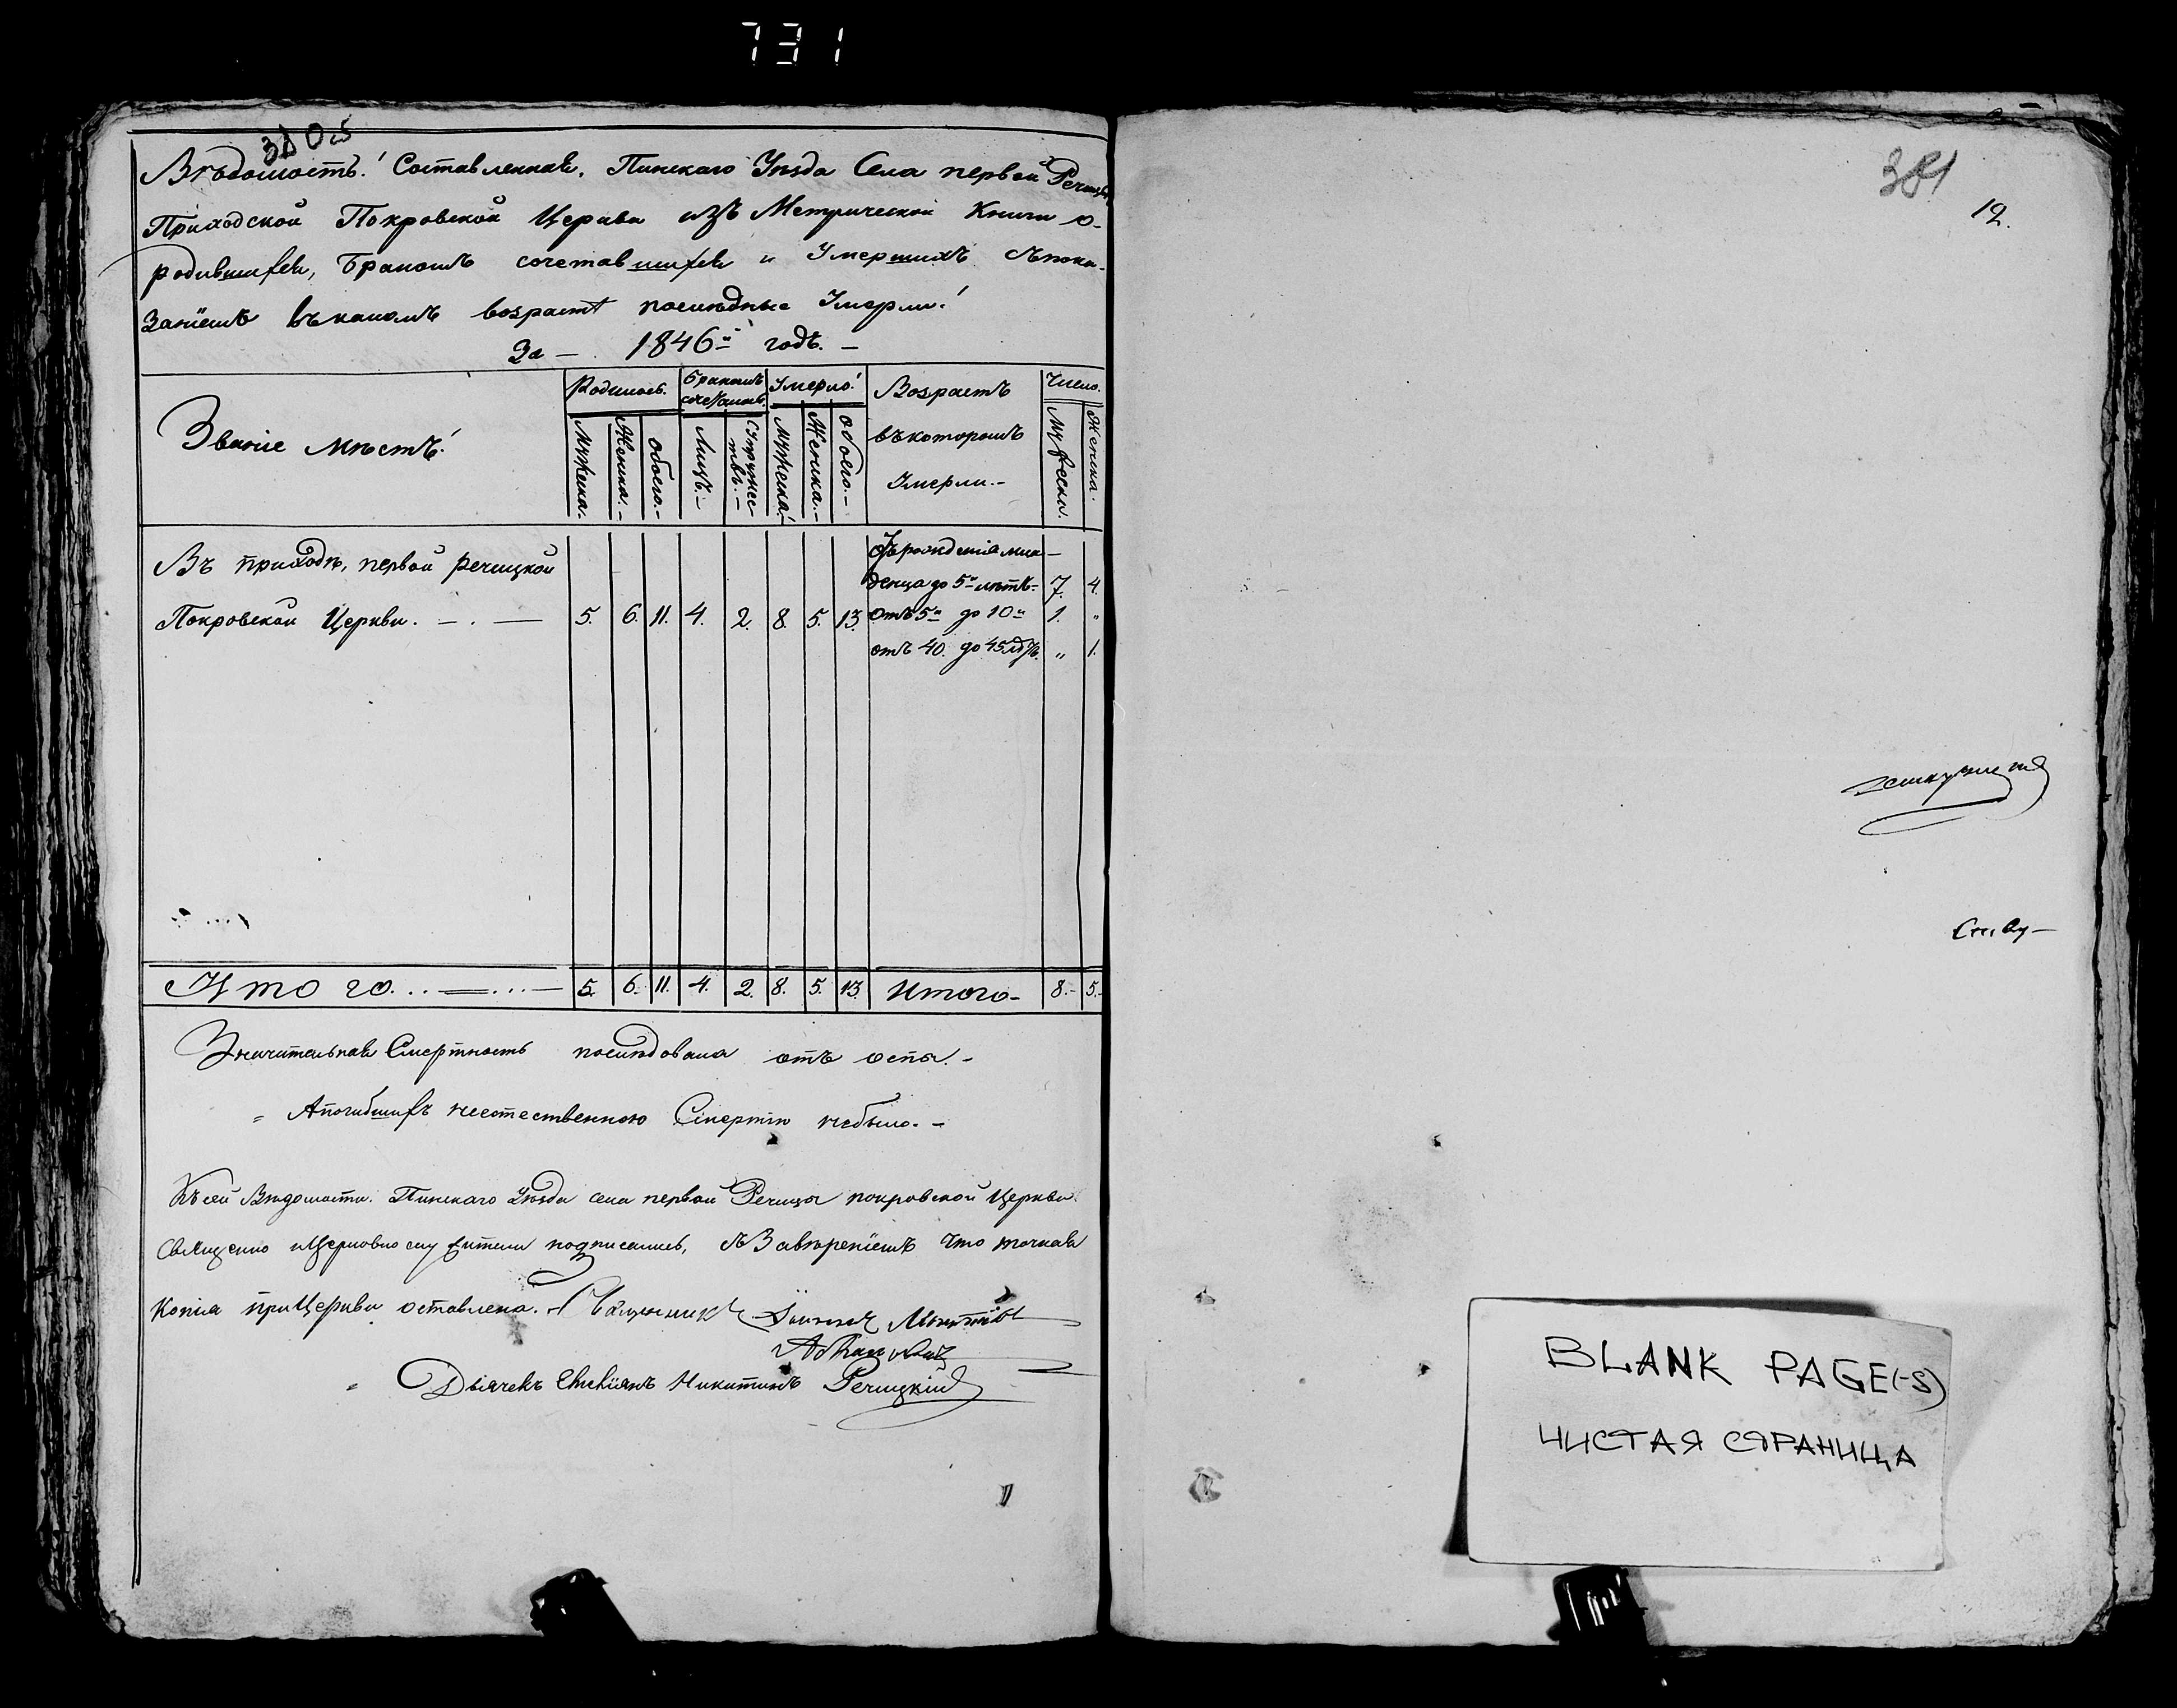 731
380 об
Вѣдомость! Составленная, Пинскаго Уѣзда Села первой Речицы
Приходской Покровской Церкви изъ Метрической Книги о
родившихся, Бракомъ сочетавшихся и Умершихъ съ пока-
Заніемъ въ какомъ возрастѣ послѣдные Умерли!
За — 1846й годъ. —
Званіе мѣстъ!
Родилось.
Бракомъ сочеталось.
Умерло!
Возрастъ въ которомъ Умерли.-
Число.
Мужска.
Женска.-
Обоего.-
Лицъ.-
Супружес-
твъ.-
Мужска!
Женска.-
Обоего.-
Мужеска.
Женска.
Въ приходѣ, первой Речицкой
Отъ рожденія мла-
денца до 5и лѣтъ- 7. 4.
Покровской Церкви. — . — 5. 6. 11. 4. 2. 8. 5. 13. Отъ 5и до 10и 1. "
отъ 40. до 45 " 1.
Итого...—...— 5. 6. 11. 4. 2. 8. 5. 13. Итого- 8.- 5.-
Значительная Смертность послѣдовала отъ оспы.-
А погибшихъ неестественною Смертію небыло.-
Къ сей Вѣдомости. Пинскаго Уѣзда села первой Речицы покровской Церкви
Священно и Церковно служители подписались, съ Завѣреніемъ что точная
Копія при Церкви оставлена. Священникъ
Дьячекъ Никитинъ Речицкій
381
12.
BLANK PAGE(-S)
ЧИСТАЯ СТРАНИЦА